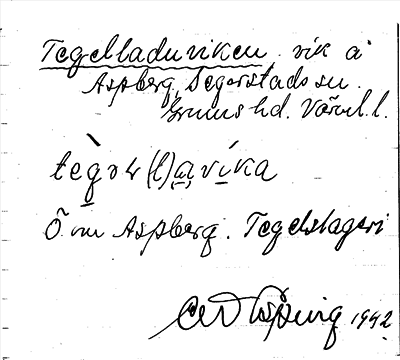 Tegelladuviken vik å
Aspberg, Segerstads sn.
Grums hd. Värml. l.
tègɷɬ(l)a̱víka
Ö om Aspberg. Tegelslageri
1942